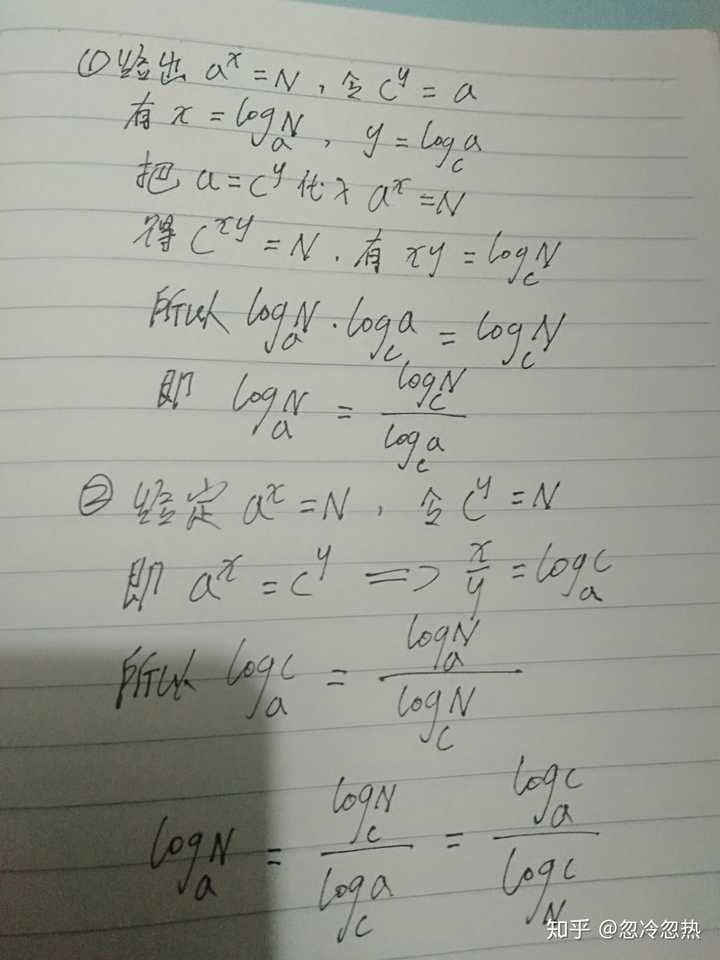 ① 给出 aˣ = N , 令 cʸ = a
有 x = logₐN , y = log_c a
把 a = cʸ 代入 aˣ = N
得 cˣʸ = N . 有 xy = log_c N
所以 logₐN · log_c a = log_c N
即 logₐN = \frac{log_c N}{log_c a}
② 给定 aˣ = N , 令 cʸ = N
即 aˣ = cʸ => \frac{x}{y} = logₐc
所以 logₐc = \frac{logₐN}{log_c N}
logₐN = \frac{log_c N}{log_c a} = \frac{logₐc}{log_N c}
知乎 @忽冷忽热